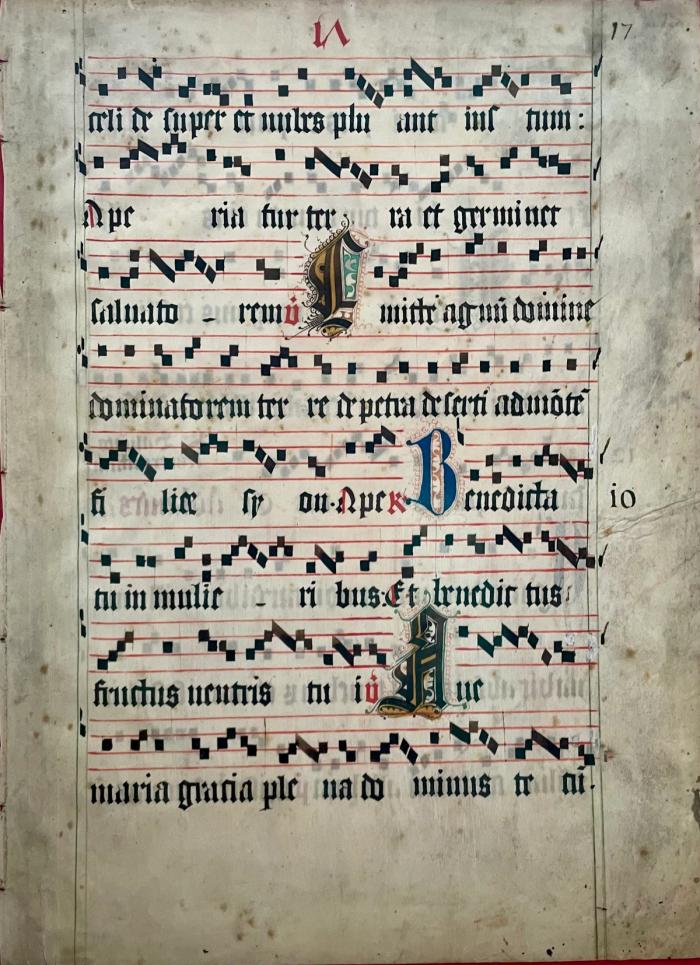 17
celi de super et nubes plu ant ius tum:
Ape ria tur ter ra et germinet
saluato rem v̇ E mitte agnū domine
dominatorem ter re de petra deserti ad mōtē
fi lie sy on. Ape R Benedicta
io
tu in mulie ri bus: Et benedic tus
fructus uentris tu i v̇ Aue
maria gracia ple na do minus te cū.